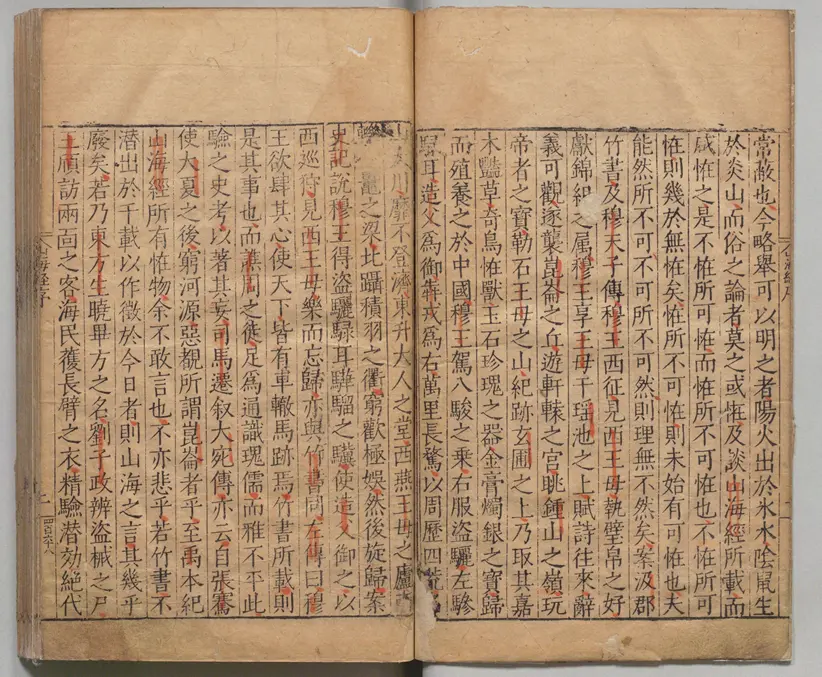 常敝也今略舉可以明之者陽火出於氷水陰鼠生
於炎山而俗之論者莫之或恠及談山海經所載而
咸恠之是不恠所可恠而恠所不可恠也不恠所可
恠則幾於無恠矣恠所不可恠則未始有可恠也夫
能然所不可不可所不可然則理無不然矣案汲郡
竹書及穆天子傳穆王西征見西王母執璧帛之好
獻錦組之屬穆王享王母于瑤池之上賦詩往來辭
義可觀遂襲崑崙之丘遊軒轅之宮眺鍾山之嶺玩
帝者之寶勒石王母之山紀跡玄圃之上乃取其嘉
木豔草奇鳥恠獸玉石珍瑰之器金膏燭銀之寶歸
而殖養之於中國穆王駕八駿之乗右服盗驪左驂
騄耳造父爲御犇戎爲右萬里長騖以周歷四荒
川靡不登濟東升大人之堂西燕王母之廬
鼉之梁北躡積羽之衢窮歡極娛然後旋歸案
史記說穆王得盗驪騄耳驊騮之驥使造父御之以
西巡狩見西王母樂而忘歸亦與竹書同左傳曰穆
王欲肆其心使天下皆有車轍馬跡焉竹書所載則
是其事也而譙周之徒足爲通識瑰儒而雅不平此
驗之史考以著其妄司馬遷叙大宛傳亦云自張騫
使大夏之後窮河源惡覩所謂崑崙者乎至禹本紀
山海經所有恠物余不敢言也不亦悲乎若竹書不
潜出於千載以作徵於今日者則山海之言其幾乎
廢矣若乃東方生曉畢方之名劉子政辨盗械之尸
王頎訪兩面之客海民獲長臂之衣精驗潜効絶代
山海經序
四百六八